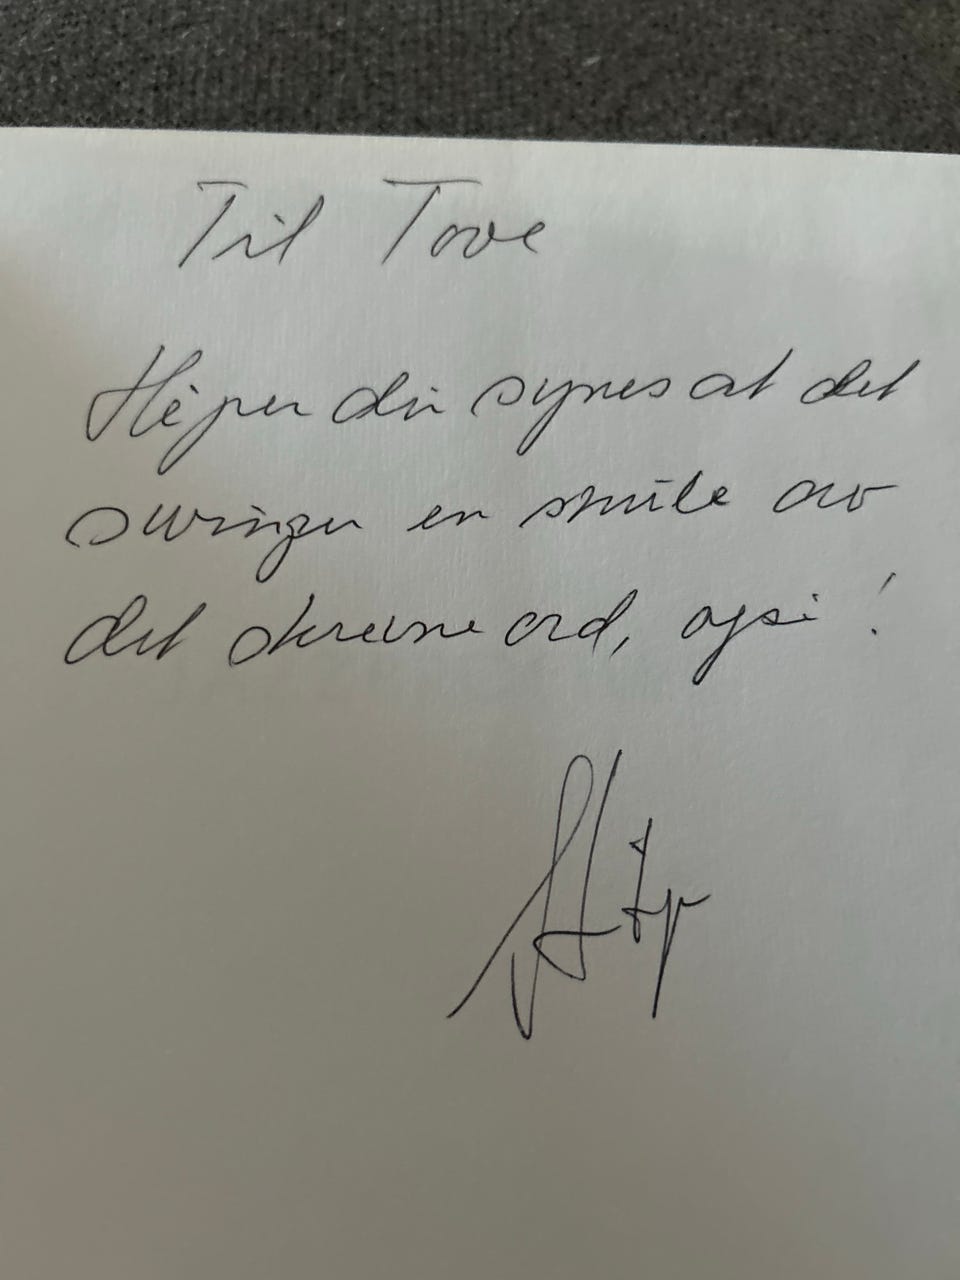 Til Tove
Håper du synes at det
svinger en smule av
det skrevne ord, også!